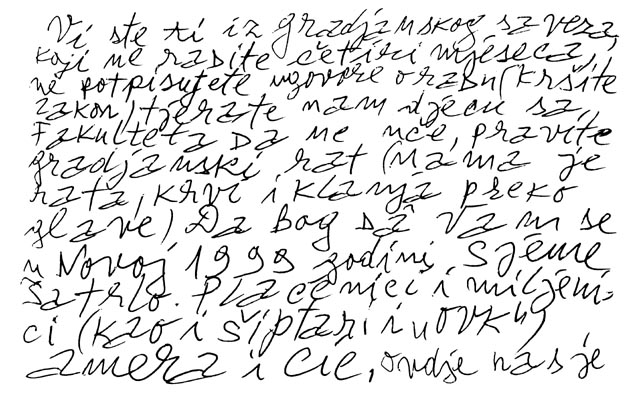 Vi ste ti iz gradjanskog saveza,
koji ne radite četiri mjeseca,
ne potpisujete ugovore o radu (kršite
zakon) tjerate nam djecu sa,
Fakulteta da ne uče, pravite
gradjanski rat (nama je
rata, krvi i klanja preko
glave) Da Bog dâ Vam se
u Novoj 1999 godini sjeme
šatrlo. Plaćenici i miljeni-
ci (kao i šiptari i u OVK")
amera i CIE, ovdje nas je